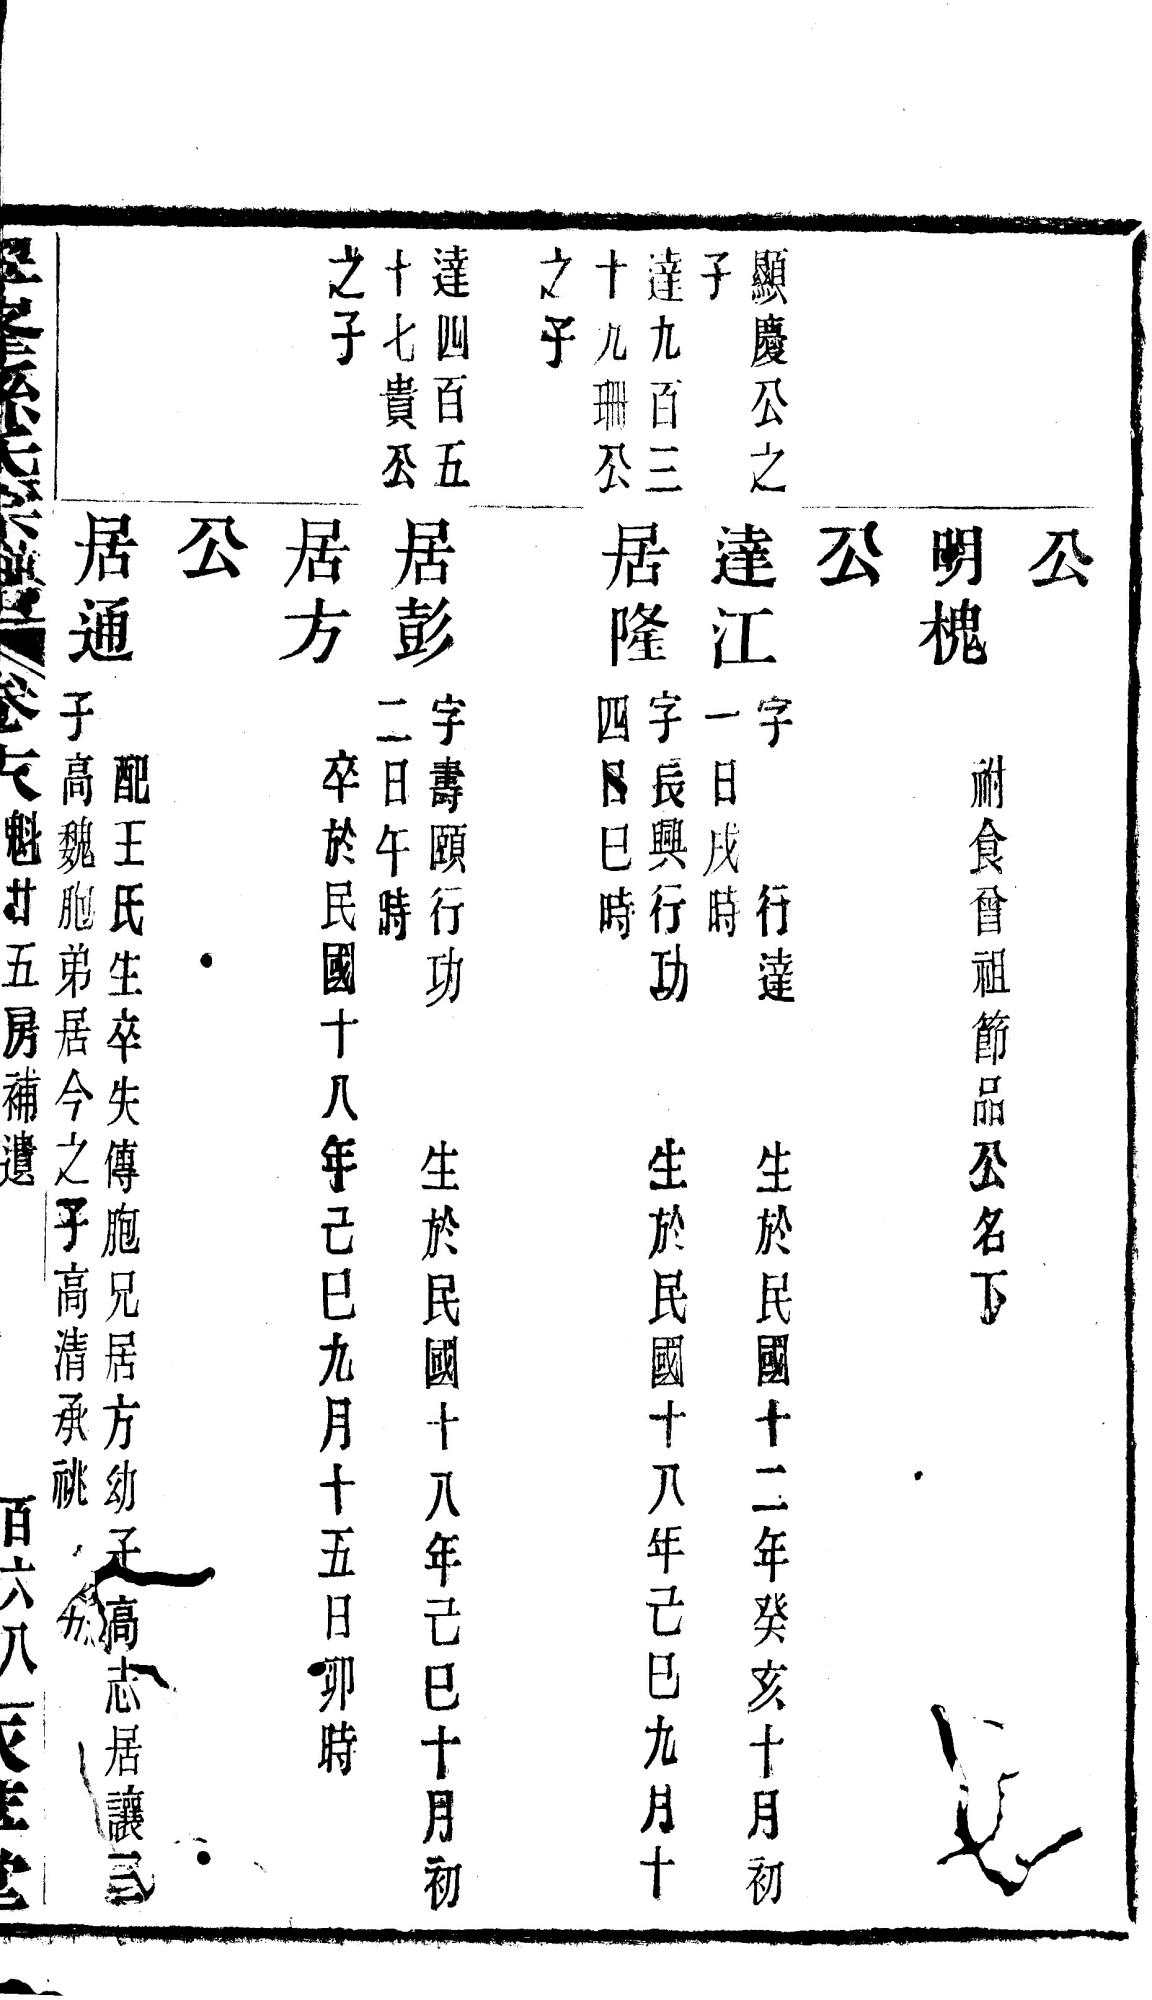 公
明槐
祔食曾祖節品公名下
公
顯慶公之
子
達江
字　行達　生於民國十二年癸亥十月初
一日戌時
達九百三
十九珊公
之子
居隆
字長興行功　生於民國十八年己巳九月十
四日巳時
達四百五
十七貴公
之子
居彭
字壽頤行功　生於民國十八年己巳十月初
二日午時
居方
卒於民國十八年己巳九月十五日卯時
公
居通
配王氏生卒失傳胞兄居方幼子高志居讓三
子高魏胞弟居今之子高清承祧
氏宗譜 卷 魁廿五房補遺 百六八 堂